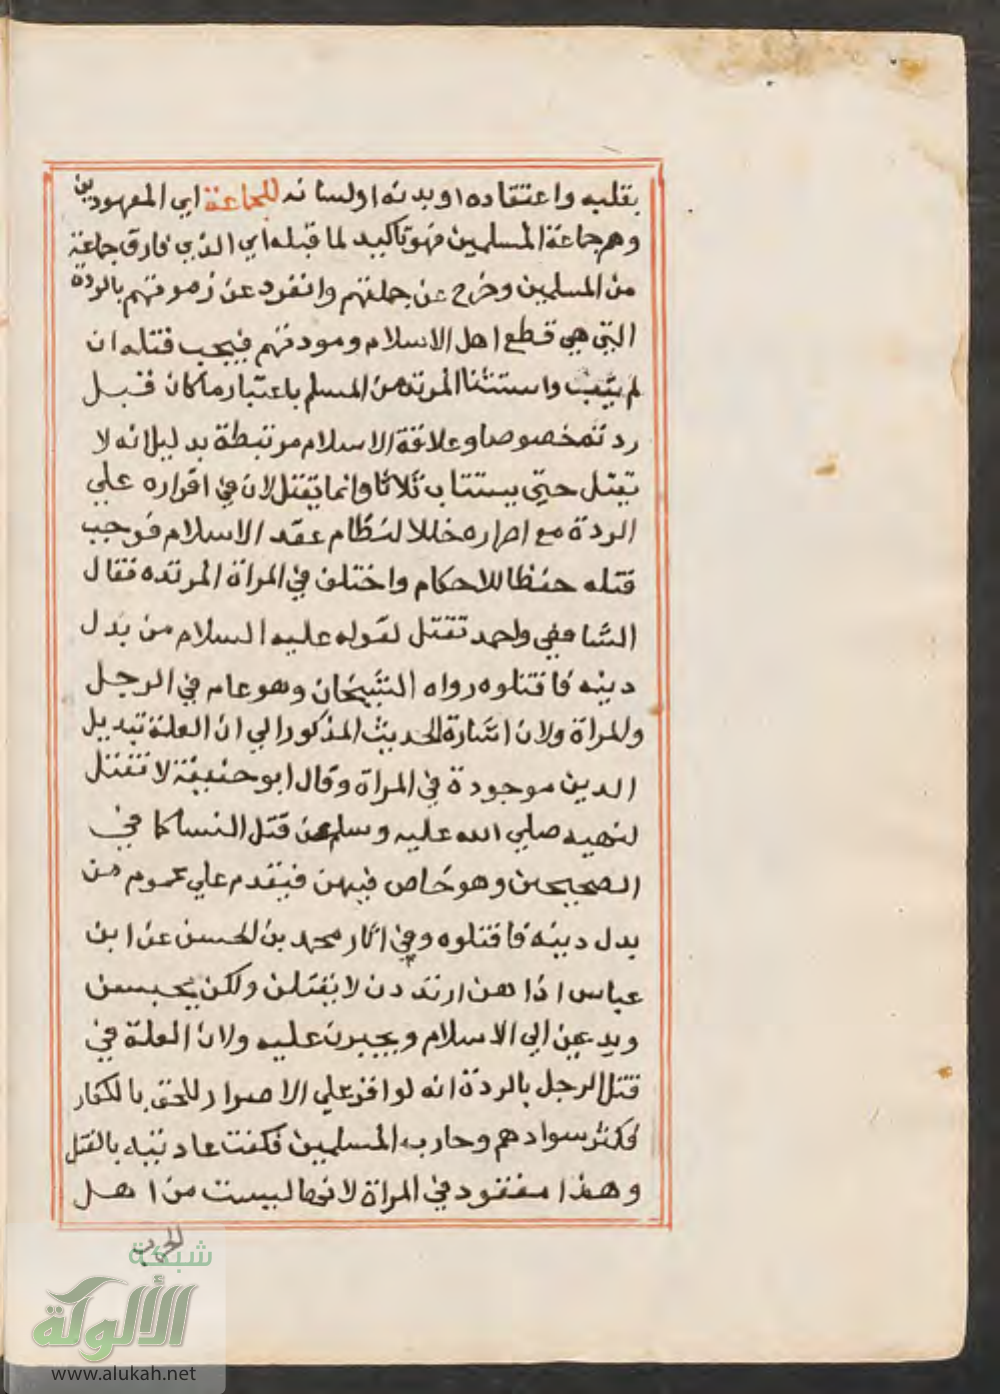 بقلبه واعتقاده او بدنه او لسانه للجماعة اي المعهودين
وهم جماعة المسلمين فهو تاكيد لما قبله اي الذي فارق جماعة
من المسلمين وخرج عن جملتهم وانفرد عن زمرتهم بالردة
التي هي قطع اهل الاسلام ومودتهم فيجب قتله ان
لم يتب واستثنا المرتد من المسلم باعتبار ما كان قبل
ردته مخصوصا وعلاقة الاسلام مرتبطة بدليل انه لا
يقتل حتي يستتاب ثلاثا وانما يقتل لان في اقراره علي
الردة مع اصراره خللا لنظام عقد الاسلام فوجب
قتله حفظا للاحكام واختلف في المراة المرتده فقال
الشافعي واحمد تقتل لقوله عليه السلام من بدل
دينه فاقتلوه رواه الشيخان وهو عام في الرجل
والمراة ولان اشارة الحديث المذكور الي ان العلة تبديل
الدين موجودة في المراة وقال ابو حنيفة لا تقتل
لنهيه صلي الله عليه وسلم عن قتل النسا كما في
الصحيحين وهو خاص فيهن فيقدم علي عموم من
بدل دينه فاقتلوه وفي اثار محمد بن الحسن عن ابن
عباس اذا هن ارتددن لا يقتلن ولكن يحبسن
ويدعين الي الاسلام ويجبرن عليه ولان العلة في
قتل الرجل بالردة انه لو اقر علي الاصرار للحق بالكفار
فكثر سوادهم وحارب المسلمين فكفت عاديته بالقتل
وهذا مفقود في المراة لانها ليست من اهل
الحرب
شبكة
الألوكة
www.alukah.net